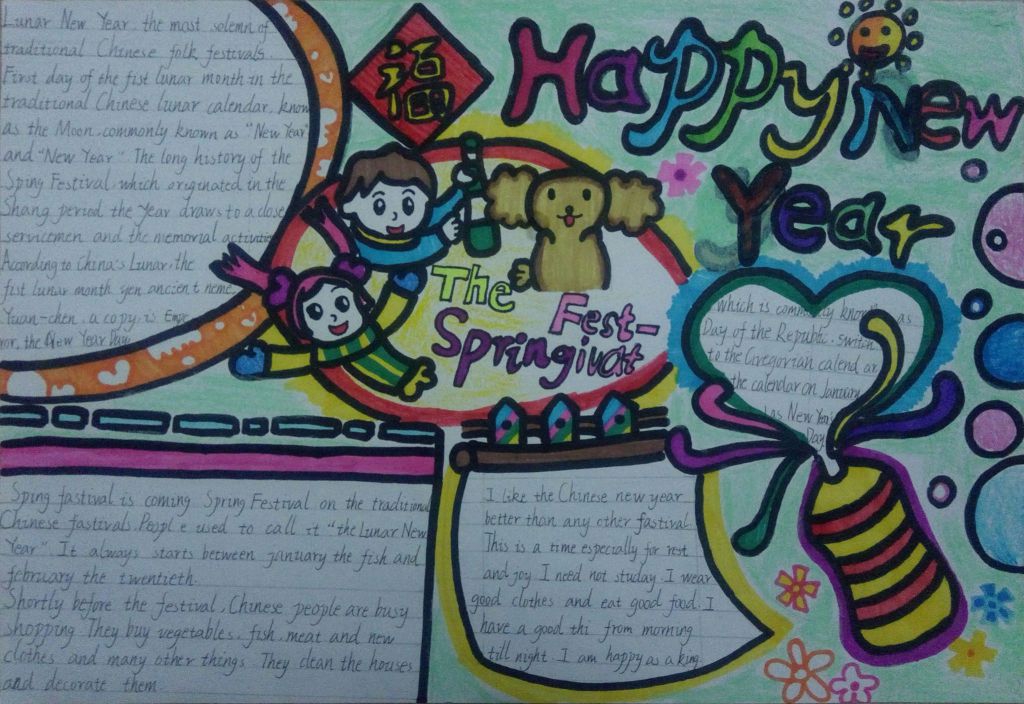 Lunar New Year, the most solemn of
traditional Chinese folk festivals.
First day of the fist lunar month in the
traditional Chinese lunar calendar, know
as the Moon, commonly known as "New Year"
and "New Year". The long history of the
Sping Festival, which originated in the
Shang period the Year draws to a close
servicemen and the memorial activities
According to China's Lunar, the
fist lunar month yen ancient neme
Yuan-chen, a copy is Empe
ror, the New Year Day
福
Happy New
Year
The
Spring Fest-
ivat
which is commonly known as
Day of the Republic. Switch
to the Gregorian calendar
the calendar on January
1 as New Year's
Day
Sping fastival is coming Spring Festival on the traditional
Chinese fastivals. People used to call it "the Lunar New
Year". It always starts between january the fish and
february the twentieth.
Shortly before the festival, Chinese people are busy
shopping. They buy vegetables, fish, meat and new
clothes and many other things. They clean the houses
and decorate them
I like the Chinese new year
better than any other fastival.
This is a time especially for rest
and joy. I need not studay. I wear
good clothes and eat good food. I
have a good thi from morning
till night. I am happy as a king.